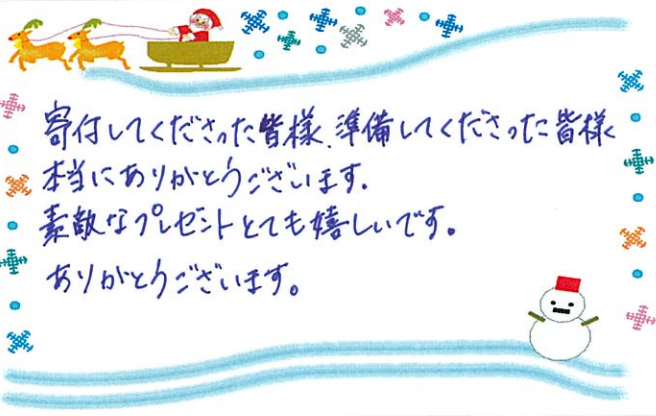 寄付してくださった皆様、準備してくださった皆様
本当にありがとうございます。
素敵なプレゼントとても嬉しいです。
ありがとうございます。